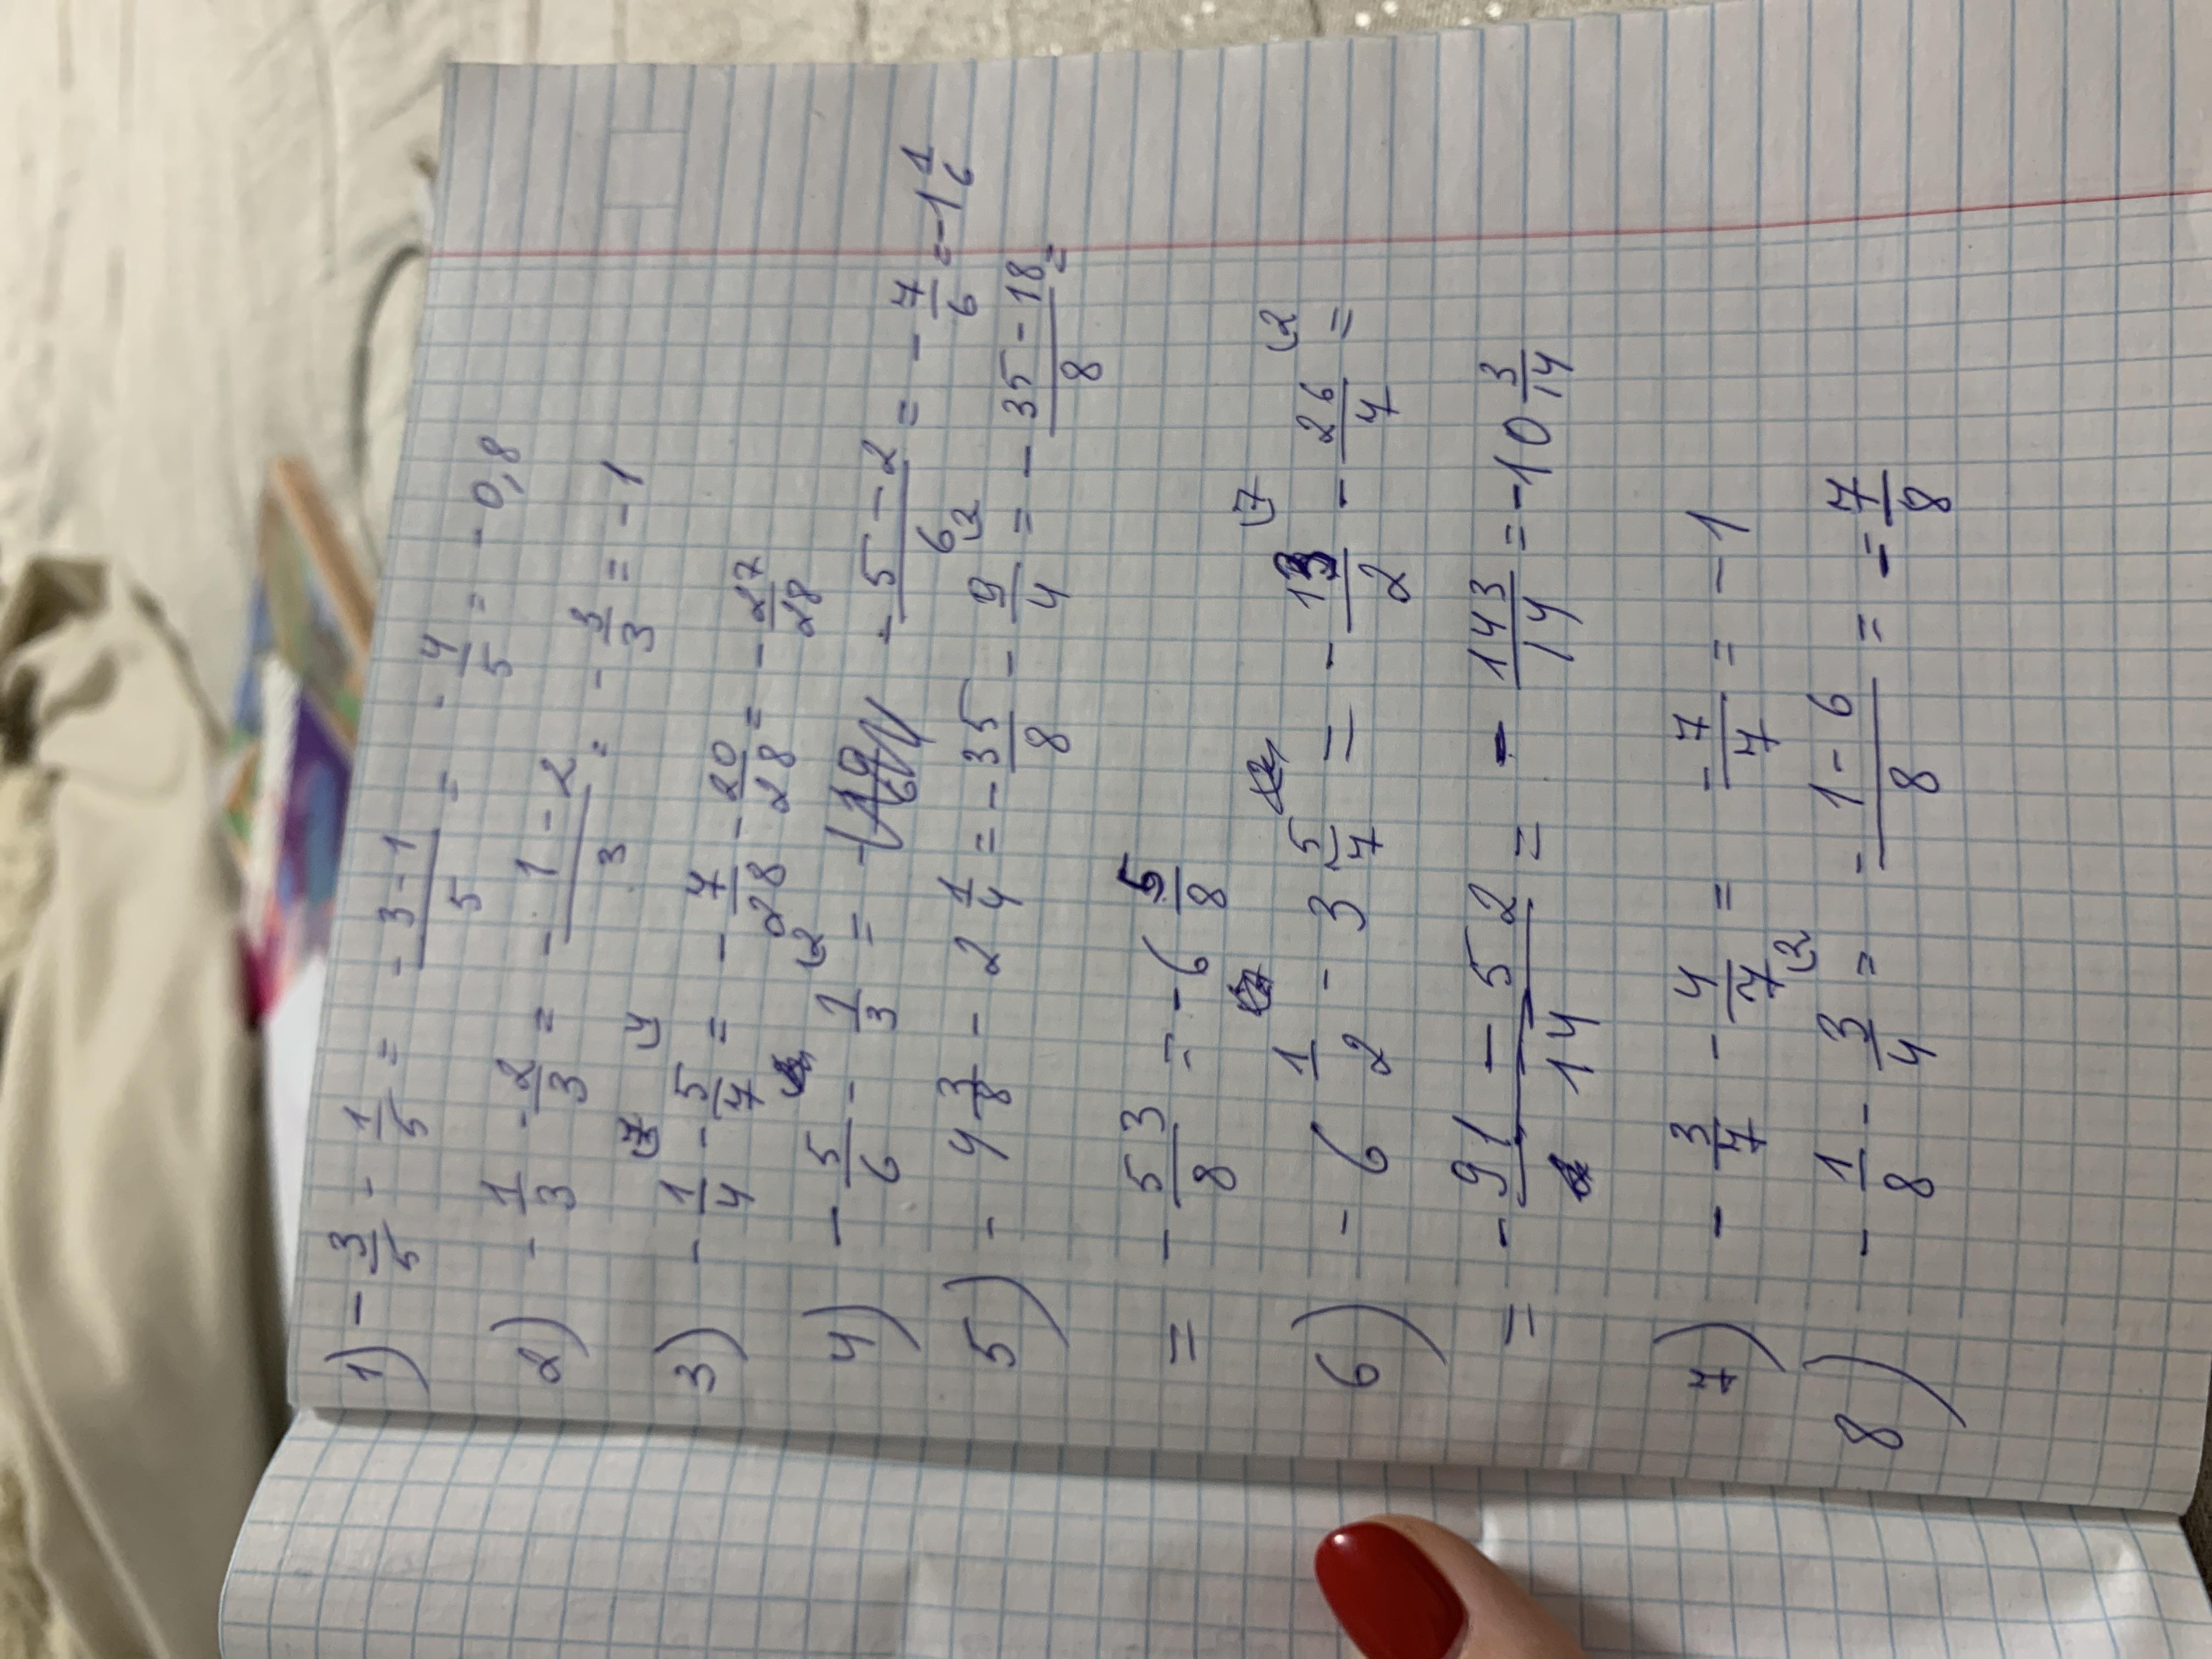 1) - 3/5 - 1/5 = - 3-1/5 = - 4/5 = - 0,8
2) - 1/3 - 2/3 = - 1-2/3 = - 3/3 = -1
3) - 1/4 (7 - 5/7 (4 = - 7/28 - 20/28 = - 27/28
4) - 5/6 - 1/3 (2 = - 5-2/6 = - 7/6 = -1 1/6
5) - 4 3/8 - 2 1/4 = - 35/8 - 9/4 (2 = - 35-18/8 =
= - 53/8 = - 6 5/8
6) - 6 1/2 - 3 5/7 = - 13/2 (7 - 26/7 (2 =
= - 91-52/14 = - 143/14 = -10 3/14
7) - 3/7 - 4/7 = - 7/7 = -1
8) - 1/8 - 3/4 (2 = - 1-6/8 = - 7/8